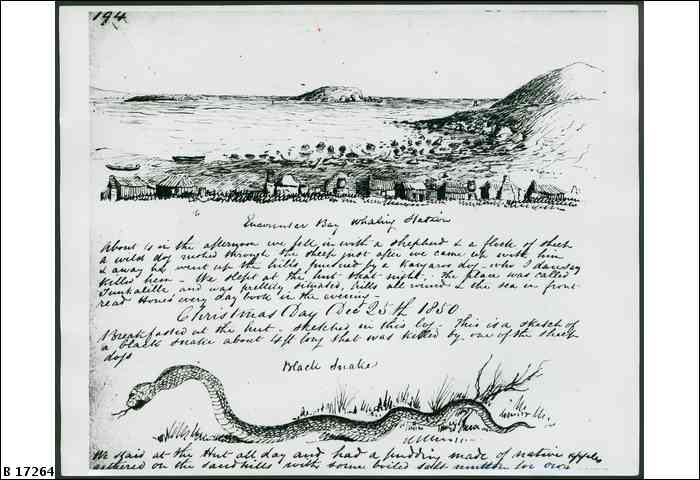 194
Encounter Bay Whaling Station
About 12 in the afternoon we fell in with a shepherd & a flock of sheep
a wild dog rushed through the sheep just after we came up with him
& away he went up the hills, pursued by a Kangaroo dog - who I daresay
killed him - We slept at the hut that night. The place was called
Tunkalille and was prettily situated, hills all round & the sea in front
read Hone's every day book in the evening -
Christmas Day Dec 25th 1850
Breakfasted at the hut - sketched in this log. This is a sketch of
a black Snake about 4ft long that was killed by one of the sheep
dogs
Black Snake
We staid at the Hut all day and had a pudding made of native apples
gathered on the sandhills with some boiled salt mutton for our
B 17264